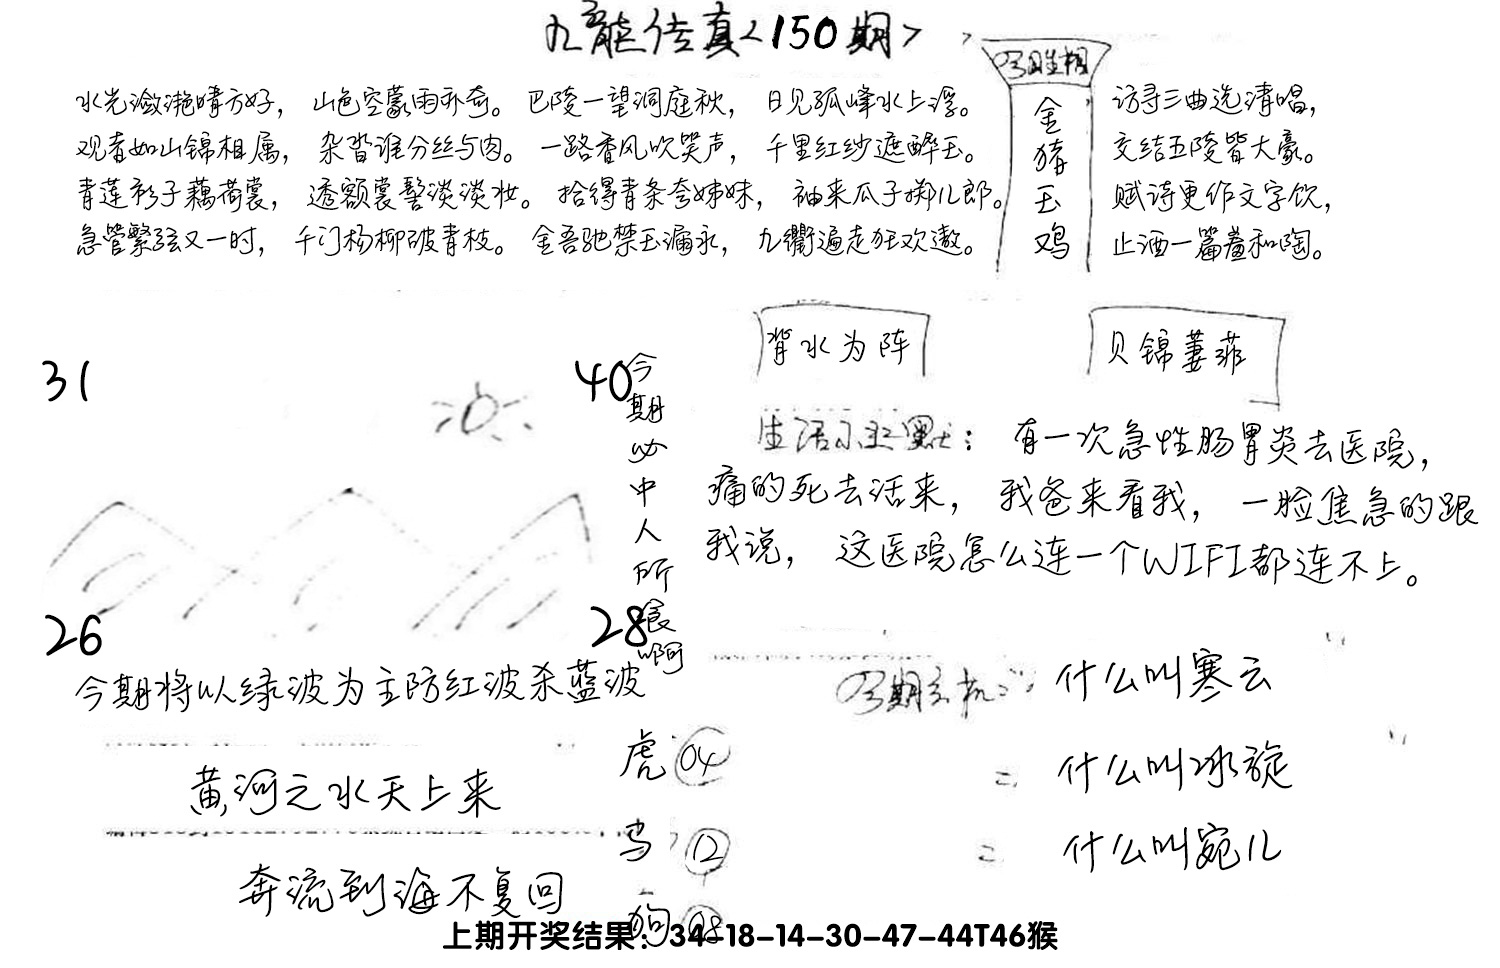 九龍传真<150期>
今期生相
金猪玉鸡
水光潋滟晴方好，山色空蒙雨亦奇。巴陵一望洞庭秋，日见孤峰水上浮。
访寻三曲选清唱，
观者如山锦相属，杂沓谁分丝与肉。一路香风吹笑声，千里红纱遮醉玉。
交结五陵皆大豪。
青莲衫子藕荷裳，透额裳髻淡淡妆。拾得青条夸姊妹，袖来瓜子掷儿郎。
赋诗更作文字饮，
急管繁弦又一时，千门杨柳破青枝。金吾驰禁玉漏永，九衢遍走狂欢遨。
止酒一篇羞和陶。
背水为阵
贝锦萋菲
31
40
26
28
今期必中人所食啊
生活小幽默：有一次急性肠胃炎去医院，
痛的死去活来，我爸来看我，一脸焦急的跟
我说，这医院怎么连一个WIFI都连不上。
今期将以绿波为主防红波杀蓝波
今期玄机：什么叫寒云
什么叫冰旋
什么叫宛儿
黄河之水天上来
奔流到海不复回
虎04
12
狗08
上期开奖结果：34-18-14-30-47-44T46猴